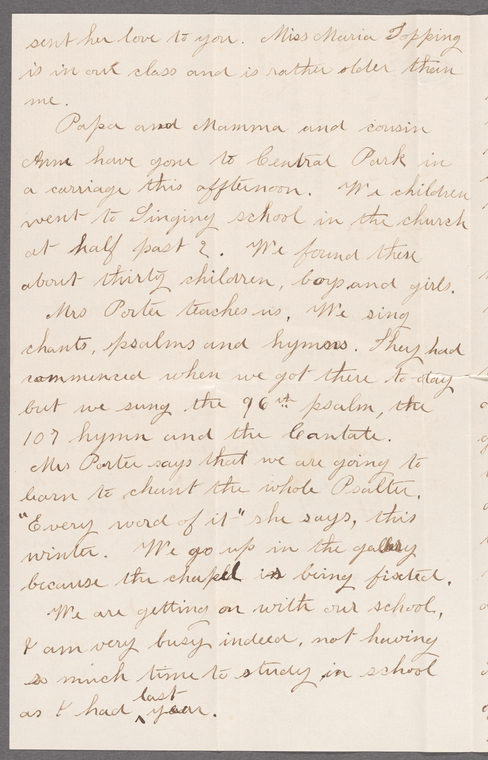 sent her love to you. Miss Maria Topping
is in our class and is rather older than
me.
Papa and Mamma and cousin
Anne have gone to Central Park in
a carriage this affternoon. We children
went to Singing school in the church
at half past 2. We found there
about thirty children, boys and girls.
Mrs Porter teaches us. We sing
chants, psalms and hymns. They had
commenced when we got there to-day
but we sung the 96th psalm, the
107 hymn and the Cantate.
Mrs Porter says that we are going to
learn to chant the whole Psalter.
"Every word of it" she says, this
winter. We go up in the gallery
because the chapel is being fixeted.
We are getting on with our school,
I am very busy indeed, not having
so much time to study in school
as I had last year.